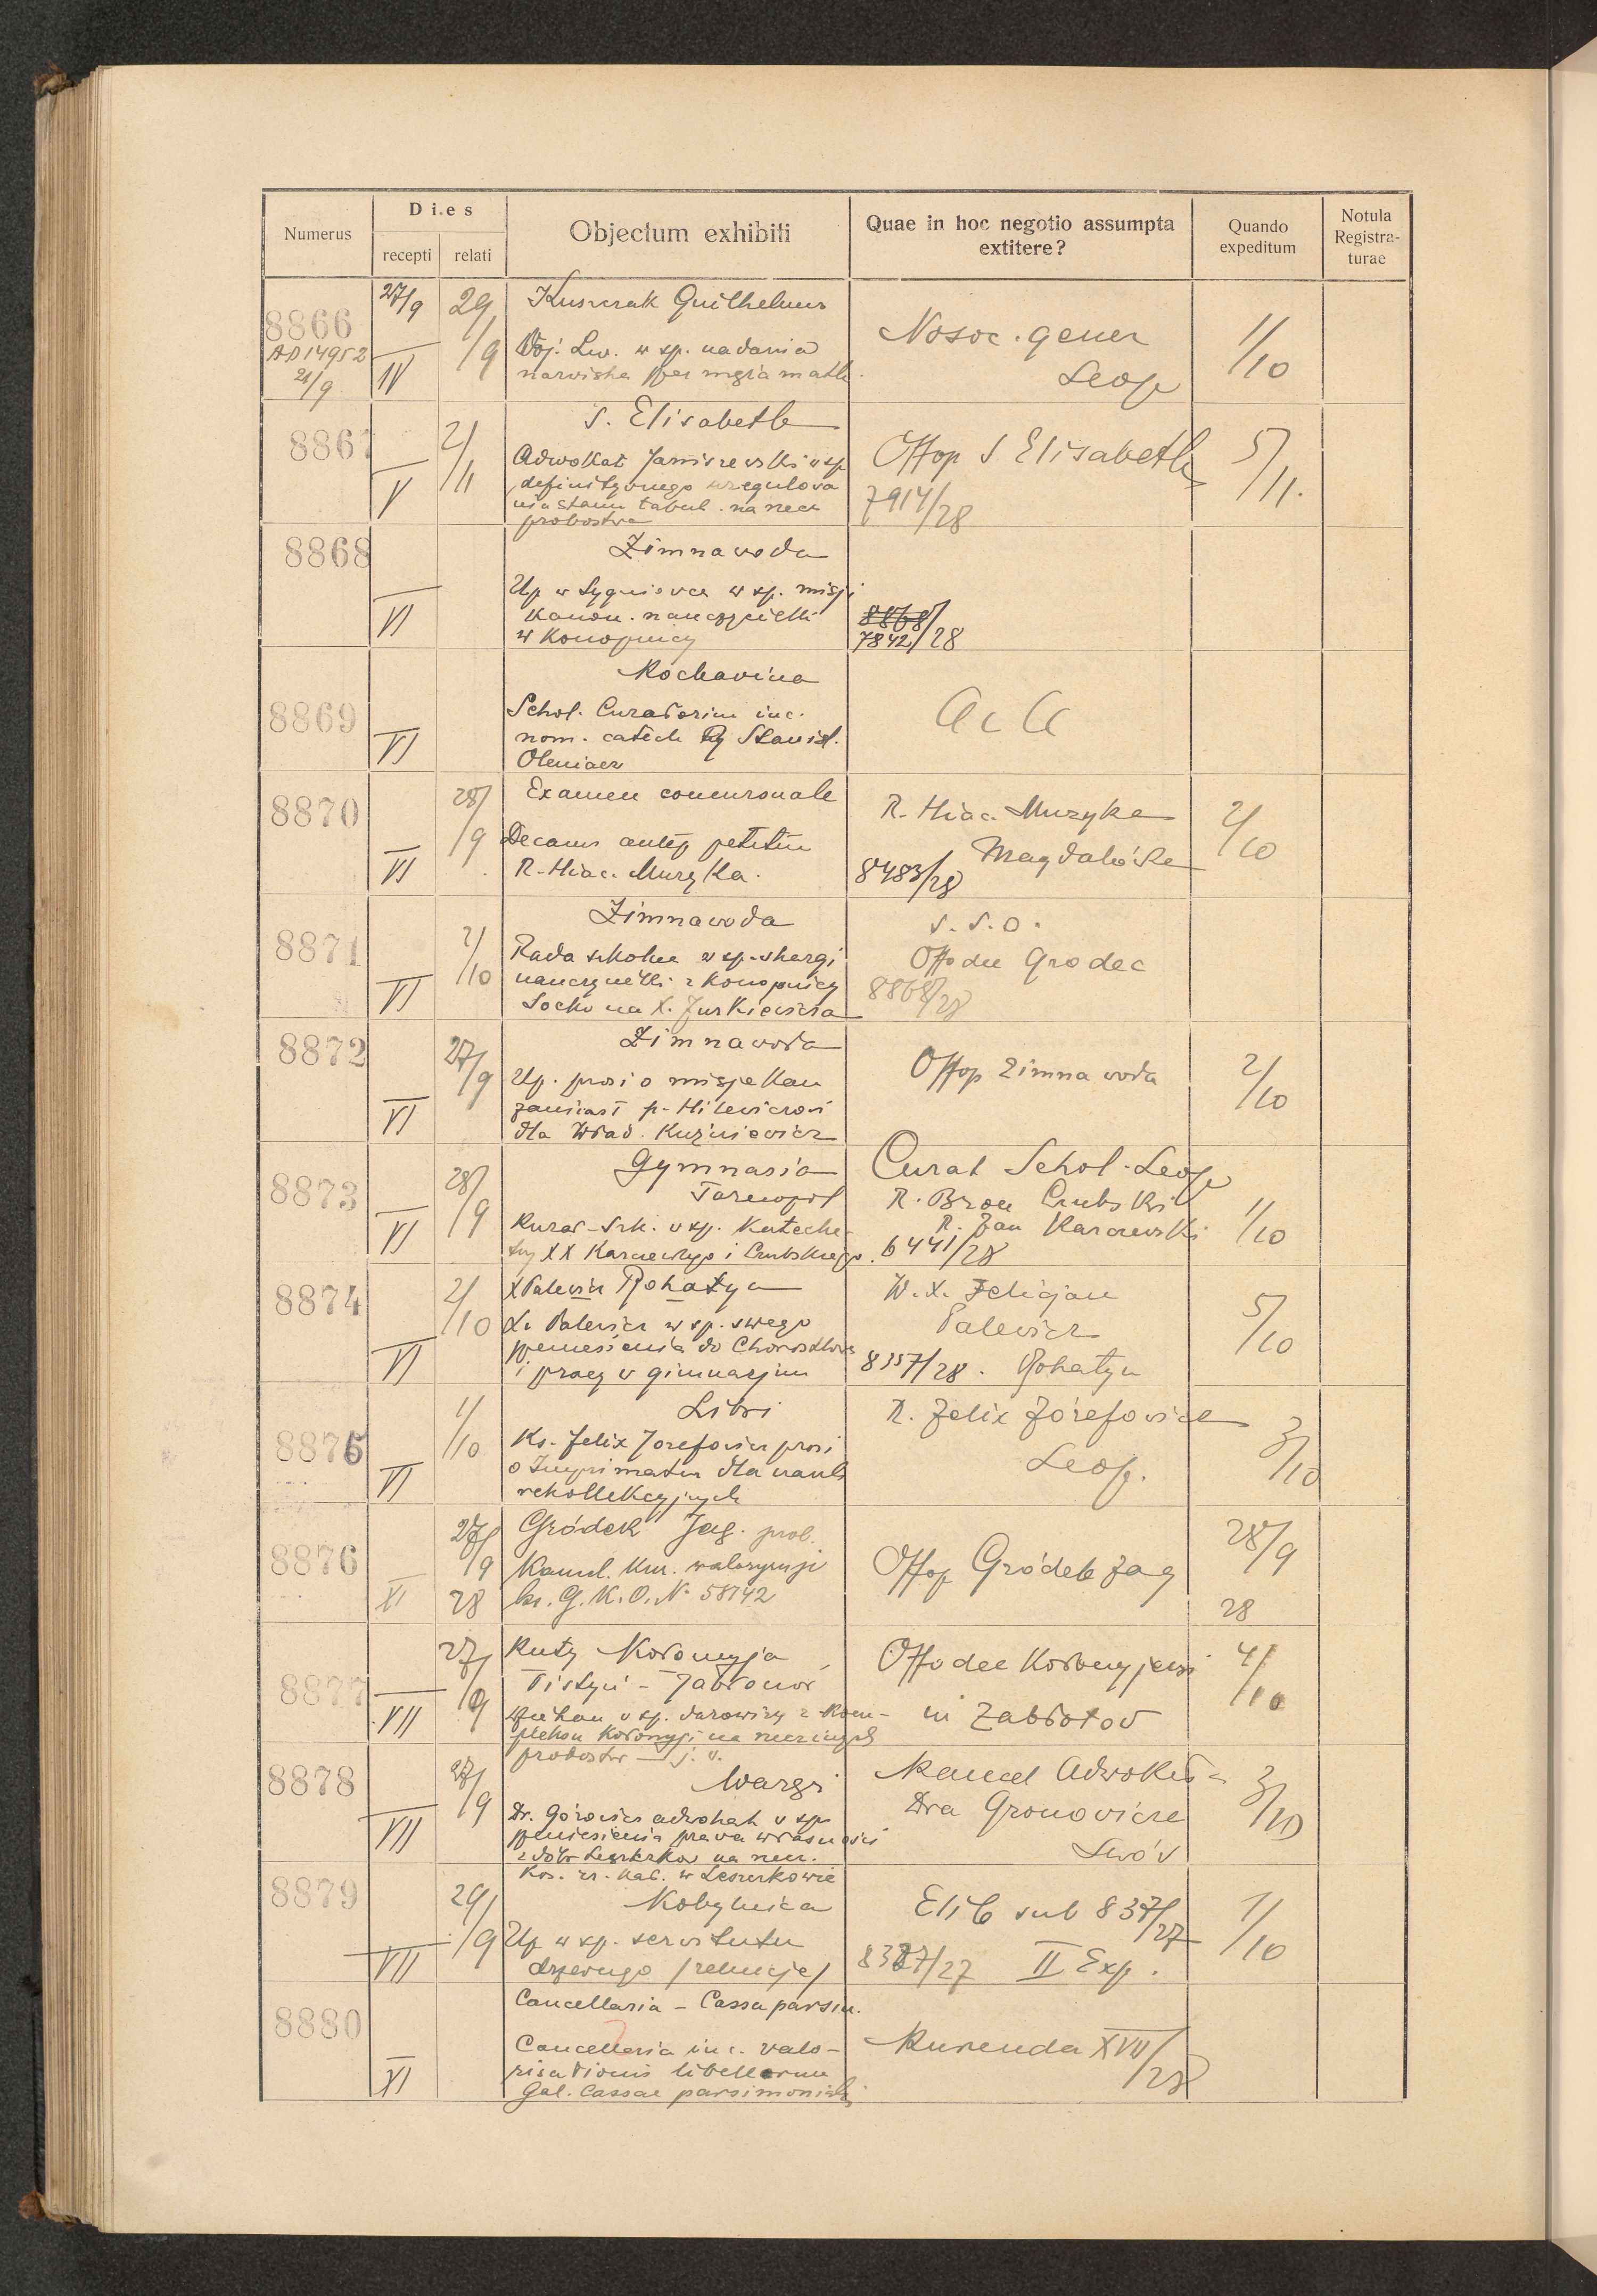 Numerus
Dies
recepti
relati
Objectum exhibiti
Quae in hoc negotio assumpta
extitere?
Quando
expeditum
Notula
Registra-
turae
8866
AD 14952
21/9
27/9
IV
29/9
Kuszczak Guilhelmus
Woj. Lw. w sp. nadania
nazwiska per mgia math.
Nosoc. gener
Leop
1/10
8867
V
2/11
S. Elisabeth
Adwokat w sp
definitywnego uregulowa
nia stanu tabul. na rzecz
probostwa
Offop S Elisabeth
7914/28
5/11.
8868
VI
Zimnawoda
Up w w sp. misji
kanon. nauczycielki
w Konopnicy
8868/
7842/28
8869
VI
Kochavina
Schol. Curatorium inc.
nom. catech Stanisl.
Oleniacz
A c A
8870
VI
28/9
Examen concursuale
Decanus petitu
R. Hiac. Muzyka.
R. Hiac. Muzyka
Magdalówka
8483/28
2/10
8871
VI
2/10
Zimnawoda
Rada szkolna w sp. skargi
nauczycielki z Konopnicy
Socko na X. Jurkiewicza
S. S. O.
Offodec Grodec
8868/28
8872
VI
27/9
Zimnawoda
Up. prosi o misje Kan
zamiast p. Hilewiczowi
dla Wład. Kuźniewicz
Offop Zimna woda
2/10
8873
VI
28/9
Gymnasia
Tarnopol
Kurat. Szk. w sp. Kateche-
tny XX Karczewskiego i
Curat Schol. Leop
R. Bron
R. Jan Karczewski
6441/28
1/10
8874
VI
2/10
X Palewicz Rohatyn
X. Palewicz w sp. swego
przeniesienia do
i pracy w gimnazjum
W. X. Felicjan
Palewicz
8357/28. Rohatyn
5/10
8875
VI
1/10
Libri
Ks. Felix Józefowicz prosi
o Imprimatur dla nauk
rekollekcyjnych
R. Felix Józefowicz
Leop.
3/10
8876
XI
27/9
28
Gródek Jag. prob.
Kancel. Kur. waloryzacji
ks. G. K. O. N. 58142
Offop Gródek Jag
28/9
28
8877
VII
27/9
Kuty Kołomyja
Pistyń - Jabłonów
w sp. darowizny z Kom-
pleksu Kołomyji na rzecz
probostw j. w.
Offodec Kołomyjensi
in Zabłotów
4/10
8878
VII
27/9
Waręż
Dr. adwokat w sp.
przeniesienia prawa własności
z dóbr na rzecz.
Koś. rz. kat. w Leszczkowie
Kancel Adwokta-
Dra Gronowicza
Lwów
3/10
8879
VII
29/9
Kobylnica
Up w sp. servitutu
drzewnego /relucje/
Elib sub 837/27
8327/27 II Exp.
1/10
8880
XI
Cancellaria - Cassa parsim.
Cancellaria inc. valo-
risationis libellorum
Gal. Cassae parsimoniali
Kurenda XVII/28